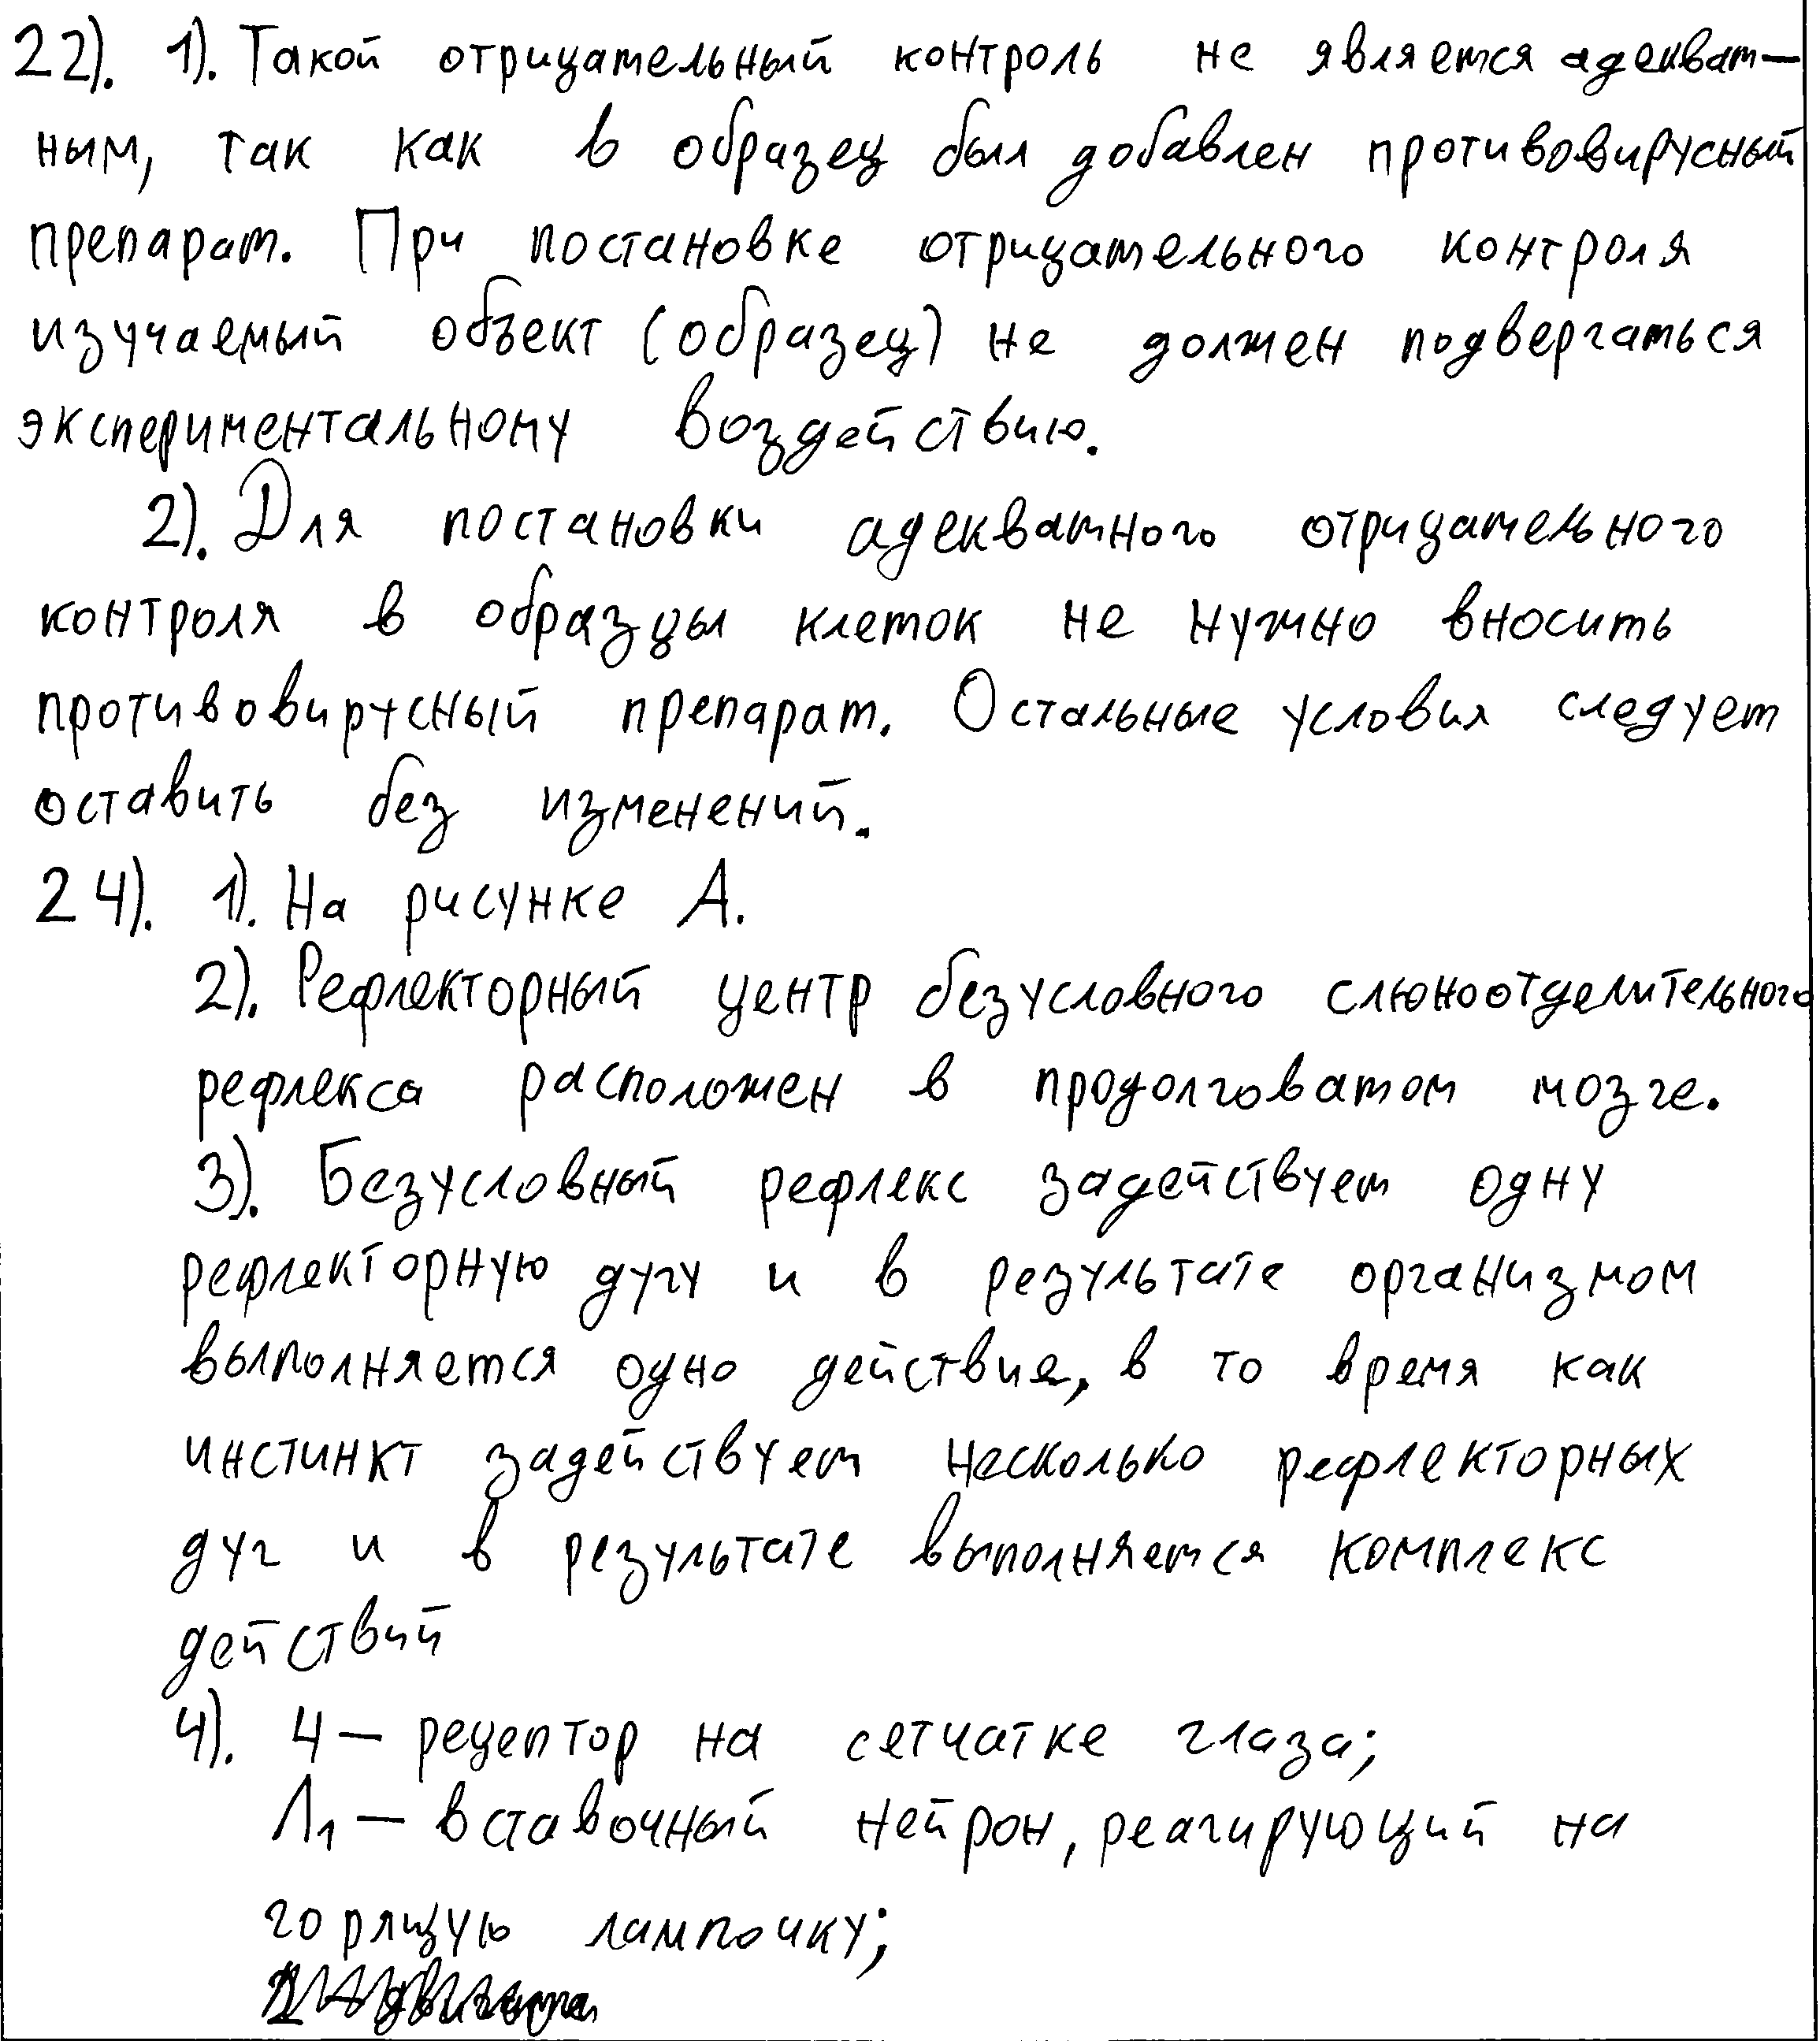 22). 1). Такой отрицательный контроль не является адекват-
ным, так как в образец был добавлен противовирусный
препарат. При постановке отрицательного контроля
изучаемый объект (образец) не должен подвергаться
экспериментальному воздействию.
2). Для постановки адекватного отрицательного
контроля в образцы клеток не нужно вносить
противовирусный препарат. Остальные условия следует
оставить без изменений.
24). 1). На рисунке А.
2). Рефлекторный центр безусловного слюноотделительного
рефлекса расположен в продолговатом мозге.
3). Безусловный рефлекс задействует одну
рефлекторную дугу и в результате организмом
выполняется одно действие, в то время как
инстинкт задействует несколько рефлекторных
дуг и в результате выполняется комплекс
действий
4). 4 — рецептор на сетчатке глаза;
Л1 — вставочный нейрон, реагирующий на
горящую лампочку;